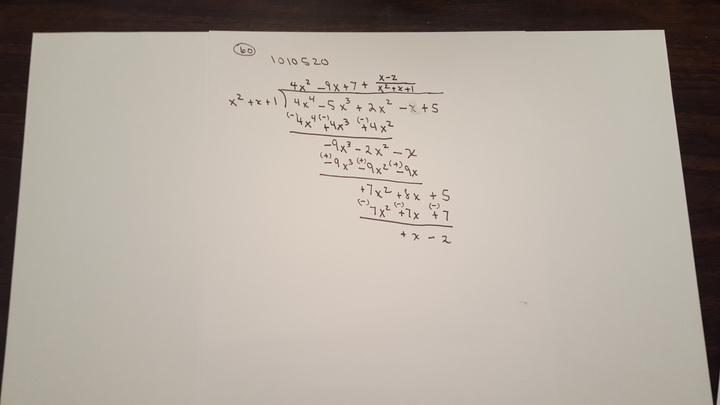 60
1010520
4x² - 9x + 7 + (x-2)/(x²+x+1)
x² + x + 1 ) 4x⁴ - 5x³ + 2x² - x + 5
(-) 4x⁴ (-) + 4x³ (-) + 4x²
-9x³ - 2x² - x
(+) - 9x³ (+) - 9x² (+) - 9x
+7x² + 8x + 5
(-) 7x² (-) + 7x (-) + 7
+ x - 2